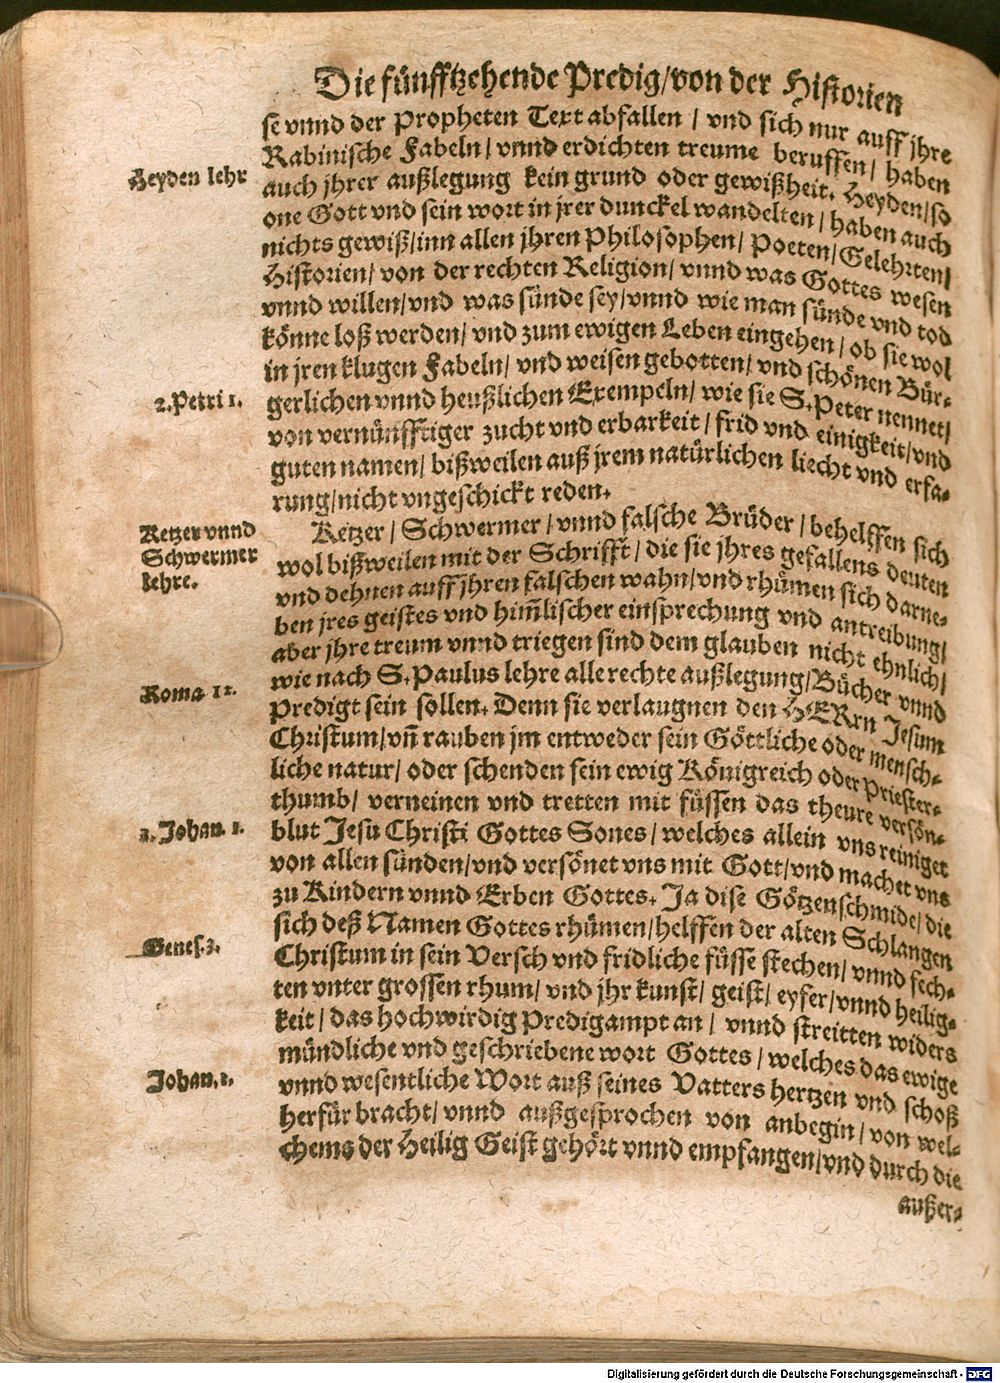 Die fünfftzehende Predig/von der Historien
se vnnd der Propheten Text abfallen / vnd sich nur auff jhre
Rabinische Fabeln/ vnnd erdichten treume beruffen/ haben
Heyden lehr
auch jhrer außlegung kein grund oder gewißheit. Heyden/so
one Gott vnd sein wort in jrer dunckel wandelten/ haben auch
nichts gewiß/inn allen jhren Philosophen/ Poeten/Gelehrten/
Historien/ von der rechten Religion/ vnnd was Gottes wesen
vnnd willen/vnd was sünde sey/vnnd wie man sünde vnd tod
könne loß werden/ vnd zum ewigen Leben eingehen/ ob sie wol
in jren klugen Fabeln/ vnd weisen gebotten/ vnd schönen Bür-
2.Petri 1.
gerlichen vnnd heußlichen Exempeln/ wie sie S.Peter nennet/
von vernünfftiger zucht vnd erbarkeit/ frid vnd einigkeit/vnd
guten namen/ bißweilen auß jrem natürlichen liecht vnd erfa-
rung/nicht vngeschickt reden.
Ketzer vnnd
Schwermer
lehre.
Ketzer / Schwermer/vnnd falsche Brüder / behelffen sich
wol bißweilen mit der Schrifft/ die sie jhres gefallens deuten
vnd dehnen auff jhren falschen wahn/vnd rhümen sich darne-
ben jres geistes vnd him̃lischer einsprechung vnd antreibung/
aber jhre treum vnnd triegen sind dem glauben nicht ehnlich/
wie nach S.Paulus lehre alle rechte außlegung/Bücher vnnd
Roma 12.
Predigt sein sollen. Denn sie verlaugnen den HERrn Jesum
Christum/vñ rauben jm entweder sein Göttliche oder mensch-
liche natur/ oder schenden sein ewig Königreich oder Priester-
thumb/ verneinen vnd tretten mit füssen das theure versön-
1.Johan. 1.
blut Jesu Christi Gottes Sones/ welches allein vns reiniget
von allen sünden/vnd versönet vns mit Gott/vnd machet vns
zu Kindern vnnd Erben Gottes. Ja dise Götzenschmide/ die
sich deß Namen Gottes rhümen/helffen der alten Schlangen
Genes.3.
Christum in sein Versch vnd fridliche füsse stechen/ vnnd fech-
ten vnter grossen rhum/ vnd jhr kunst/ geist/ eyfer/vnnd heilig-
keit/ das hochwirdig Predigampt an/ vnnd streitten widers
mündliche vnd geschriebene wort Gottes / welches das ewige
Johan.1.
vnnd wesentliche Wort auß seines Vatters hertzen vnd schoß
herfür bracht/ vnnd außgesprochen von anbegin/ von wel-
chems der Heilig Geist gehört vnnd empfangen/vnd durch die
außer-
Digitalisierung gefördert durch die Deutsche Forschungsgemeinschaft - DFG